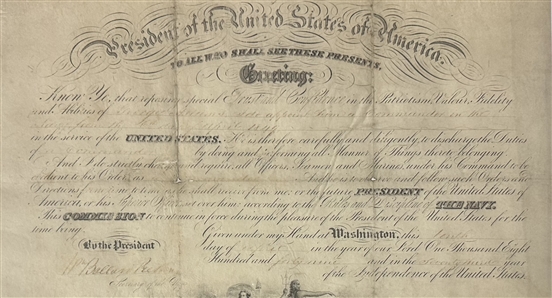 President of the United States of America.
TO ALL WHO SHALL SEE THESE PRESENTS,
Greeting:
Know Ye, that reposing special Trust and Confidence in the Patriotism, Valour, Fidelity
and Abilities of George I do appoint him a Commander in the
in the service of the UNITED STATES. He is therefore carefully and diligently to discharge the Duties
of by doing and performing all Manner of Things thereto belonging
And I do strictly charge and require all Officers, Seamen and Marines under his Command to be
obedient to his Orders as And he is to observe and follow such Orders and
Directions from time to time as he shall receive from me, or the future PRESIDENT of the United States of
America, or his Superior Officer set over him according to the Rules and Discipline of THE NAVY.
This COMMISSION to continue in force during the pleasure of the President of the United States for the
time being.
Given under my Hand at Washington, this
By the President
day of in the year of our Lord One Thousand Eight
Hundred and and in the year
of the Independence of the United States.
Wm Ballard Preston